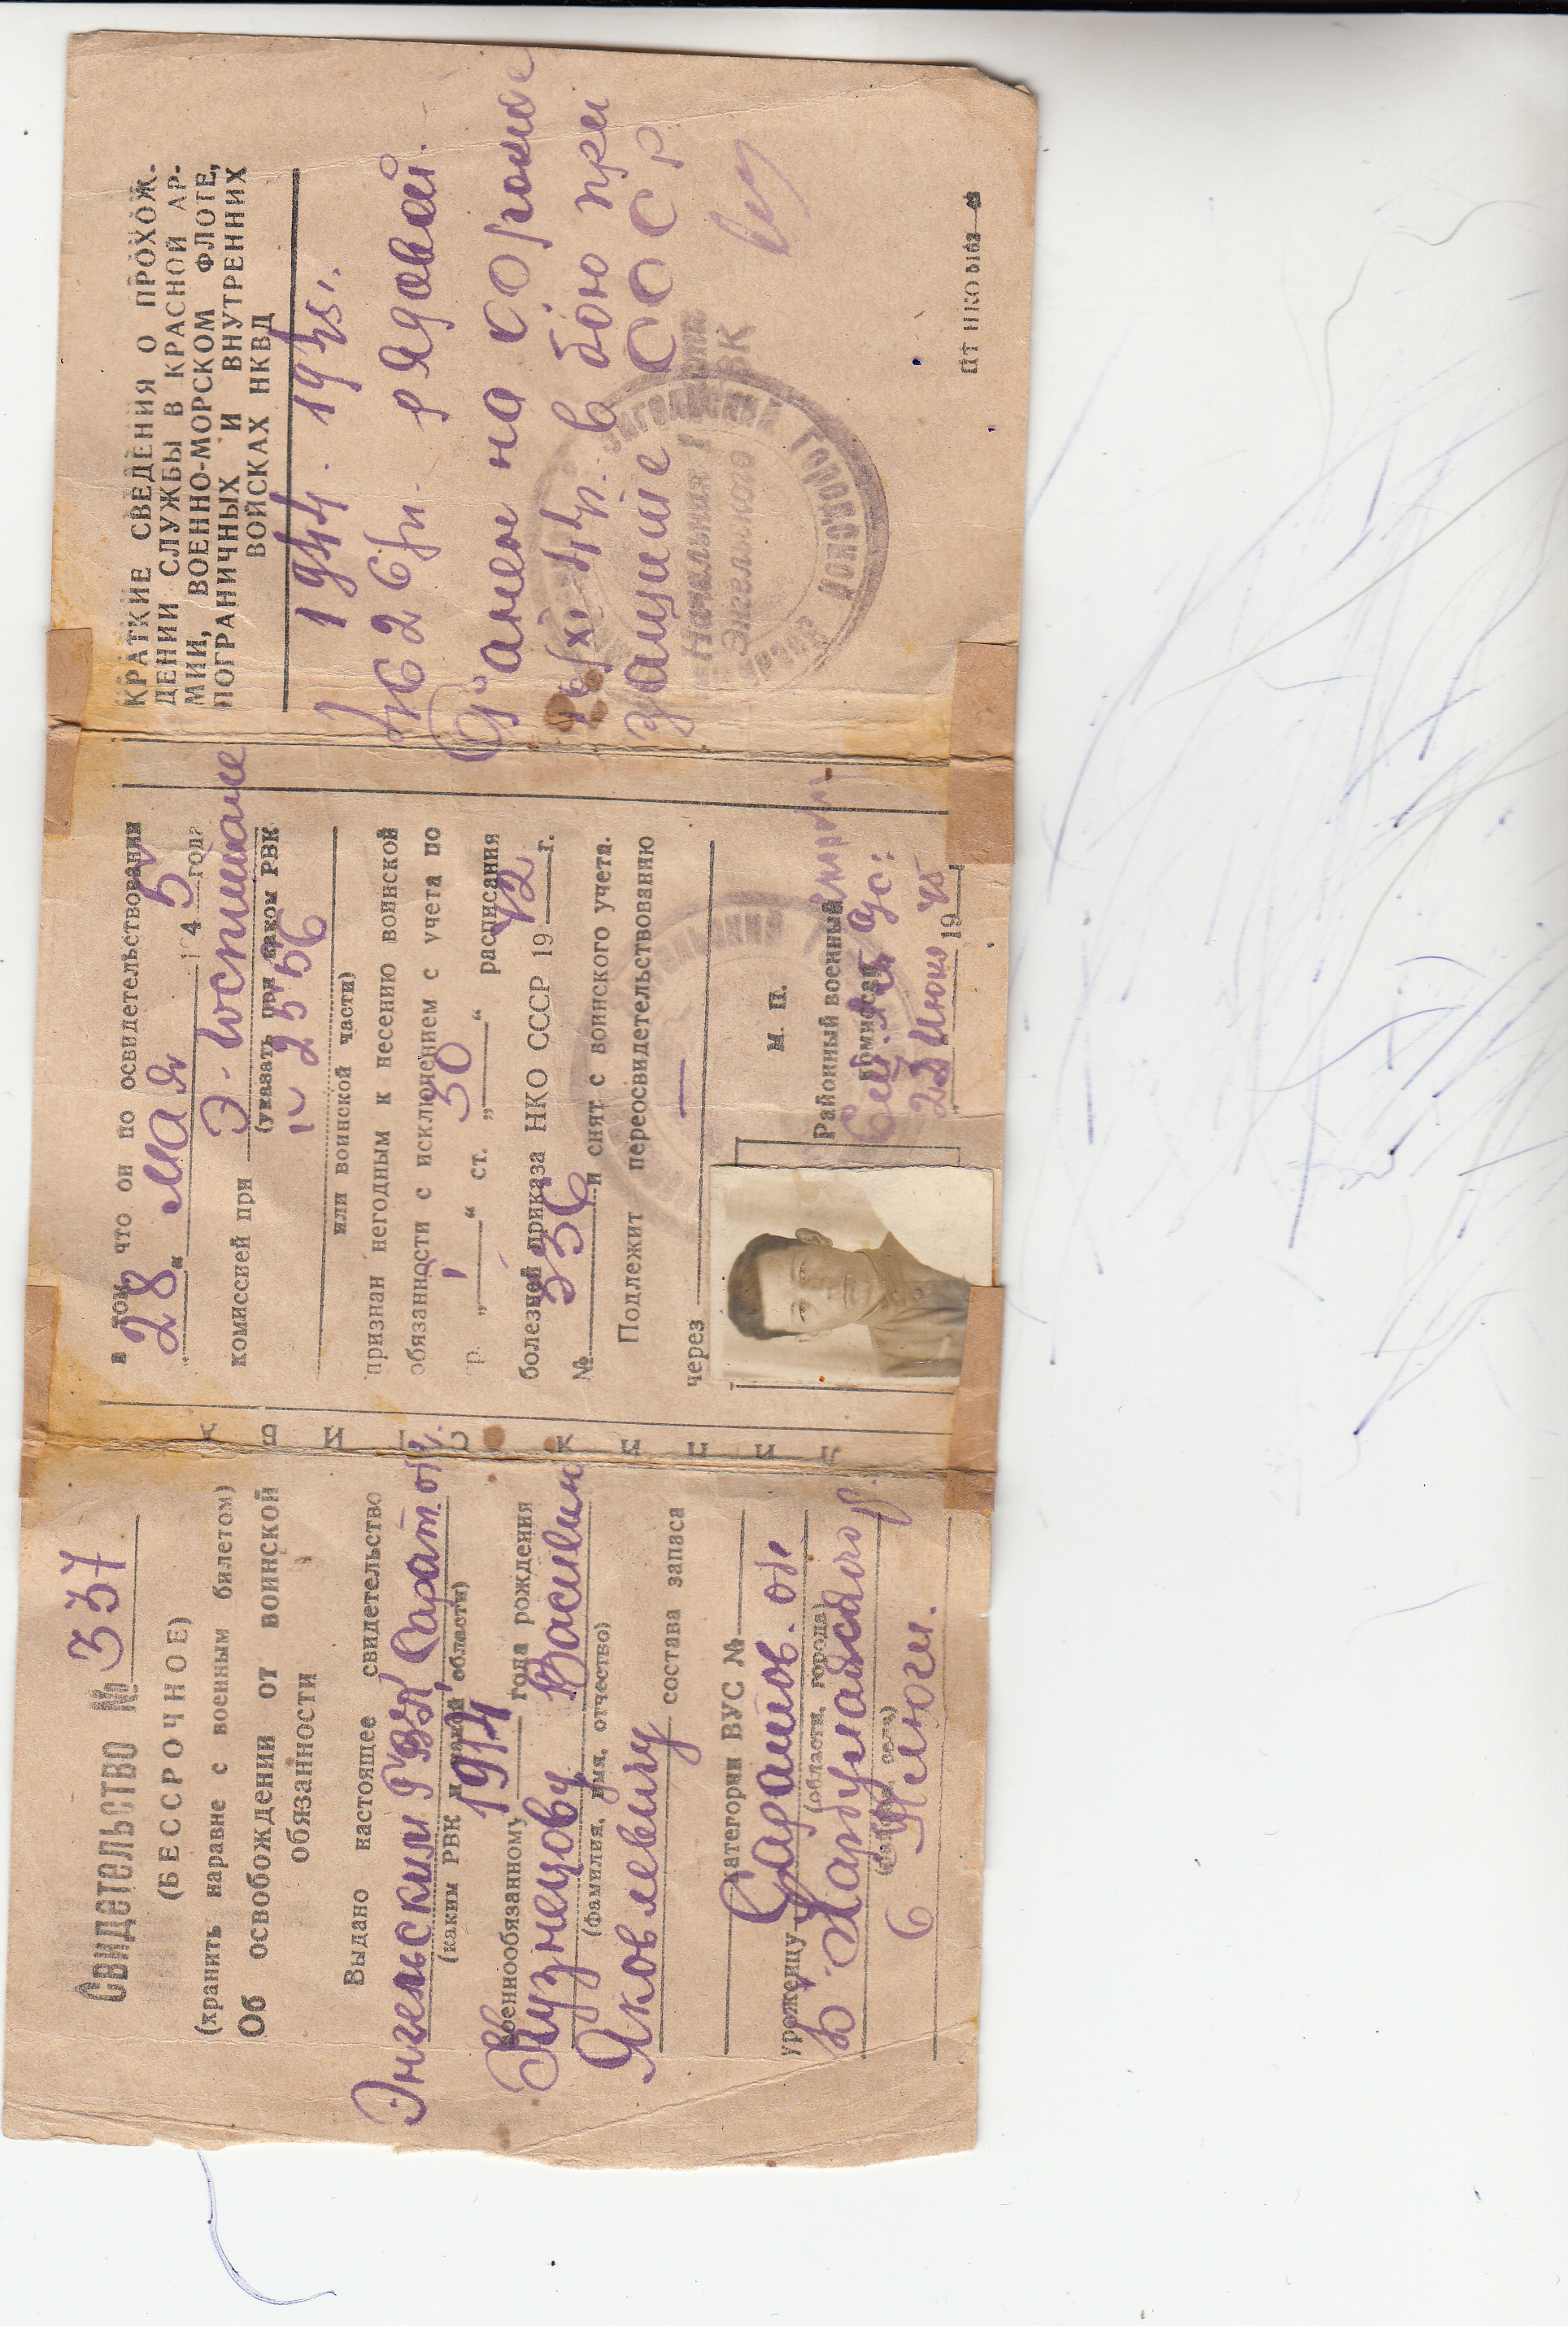 Свидетельство № 337
(БЕССРОЧНОЕ)
(хранить наравне с военным билетом)
Об освобождении от воинской
обязанности
Выдано настоящее свидетельство
Энгельским РВК Сарат. обл.
(каким РВК и какой области)
военнообязанному 1914 года рождения
Кузнецову Василию
(фамилия, имя, отчество)
Яковлевичу состава запаса
Категории ВУС №
уроженцу Саратов. обл.
(области, города)
Б.
(района, села)
с
л и н и я с г и в а
в том, что он по освидетельствовании
"28" мая 1945 года
комиссией при Э. госпитале
(указать при каком РВК
2556
или воинской части)
признан негодным к несению воинской
обязанности с исключением с учета по
гр. „I“ ст. „30“ расписания
болезней приказа НКО СССР 1942 г.
№ 336 и снят с воинского учета.
Подлежит переосвидетельствованию
через —
М. П.
Районный военный
комиссар
" " Июня 1945
КРАТКИЕ СВЕДЕНИЯ О ПРОХОЖ-
ДЕНИИ СЛУЖБЫ В КРАСНОЙ АР-
МИИ, ВОЕННО-МОРСКОМ ФЛОТЕ,
ПОГРАНИЧНЫХ И ВНУТРЕННИХ
ВОЙСКАХ НКВД
1944. 1945г.
рядовой.
Ранен на
в бою при
защите СССР
Начальник 1 части
Энгельского РВК
ПТ НКО 5162